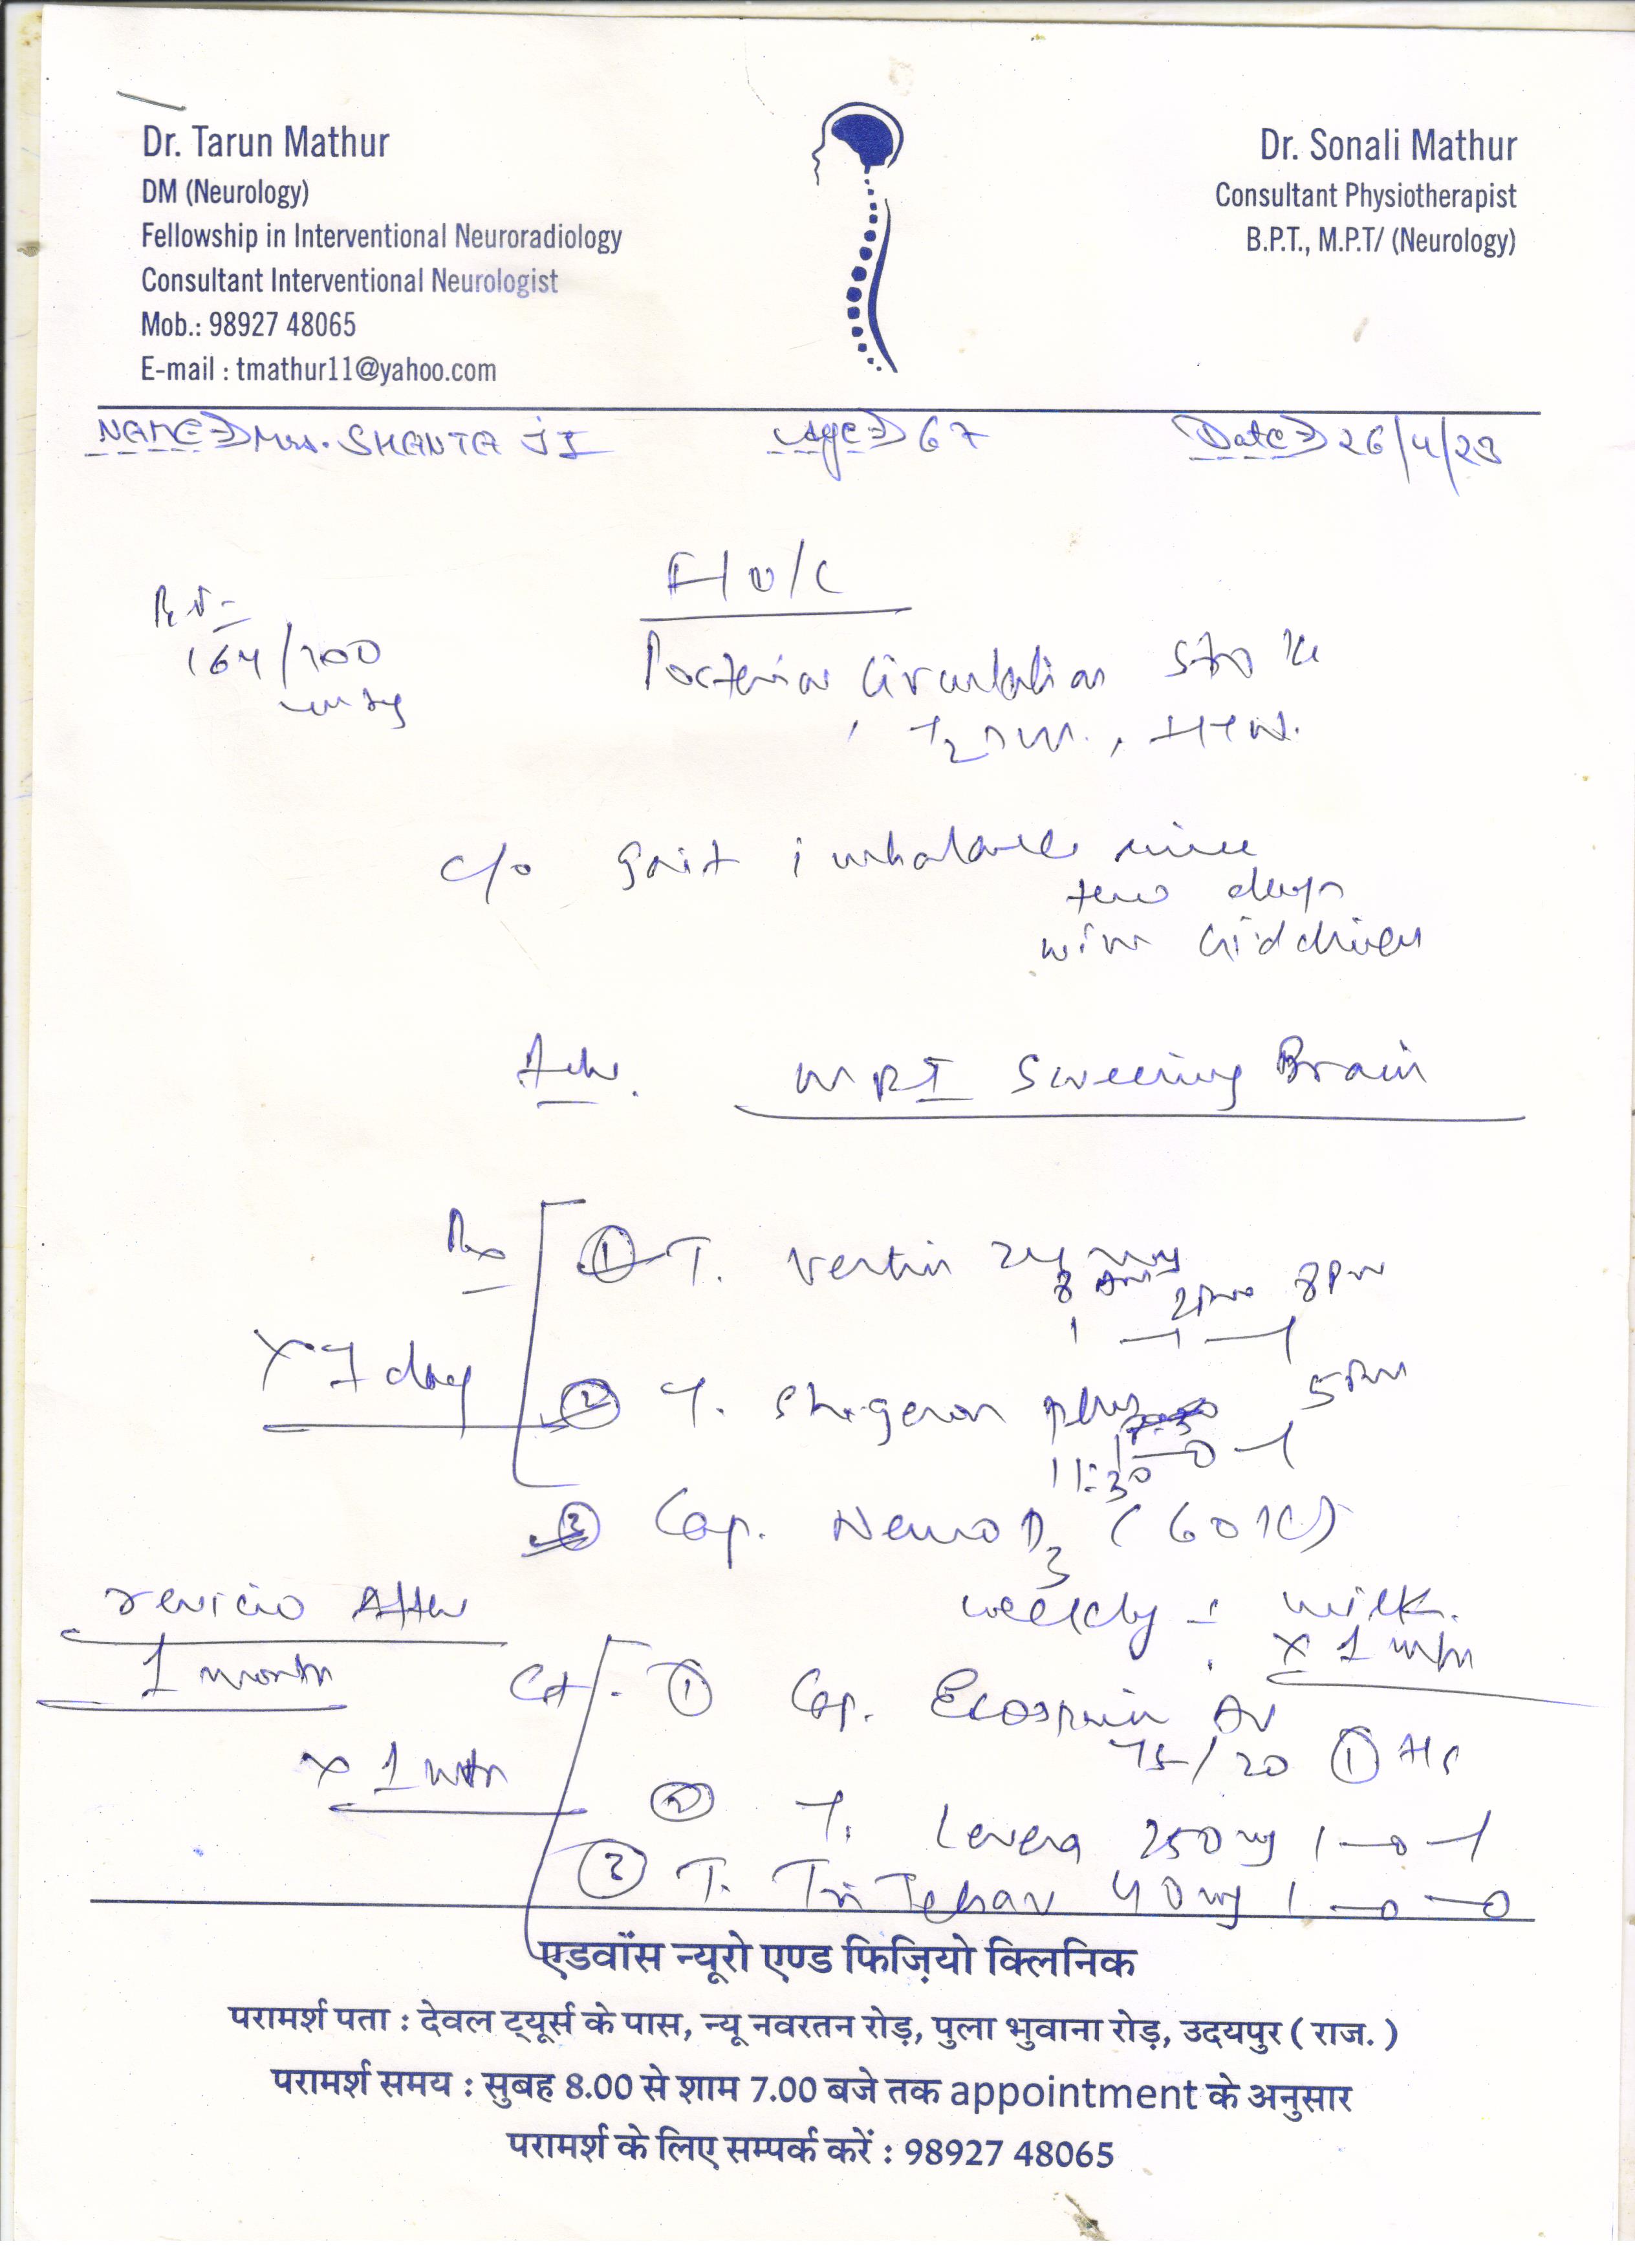 Dr. Tarun Mathur
DM (Neurology)
Fellowship in Interventional Neuroradiology
Consultant Interventional Neurologist
Mob.: 98927 48065
E-mail : tmathur11@yahoo.com
Dr. Sonali Mathur
Consultant Physiotherapist
B.P.T., M.P.T/ (Neurology)
NAME⇒ Mrs. SHANTA JI Age⇒ 67 Date⇒ 26/4/23
F/U/C
164/100
mmHg
Posterior Circulation Stroke
, T2DM., HTN.
C/o gait imbalance since
few days
with Giddiness
Adv. MRI Screening Brain
Rx
① T. Vertin 24 mg
8 AM 2PM 8PM
1 — 1 — 1
x 7 day
② T. Stugeron plus
5PM
11:30 1 — 0 — 1
③ Cap. Neuro D3 (60K)
weekly milk.
x 1 mth
review After
1 month
Ct. ① Cap. Ecosprin AV
75/20 ① HS
x 1 mth
② T. Levera 250mg 1 — 0 — 1
③ T. Tritelsar 40mg 1 — 0 — 0
एडवॉंस न्यूरो एण्ड फिज़ियो क्लिनिक
परामर्श पता : देवल ट्यूर्स के पास, न्यू नवरतन रोड़, पुला भुवाना रोड़, उदयपुर ( राज. )
परामर्श समय : सुबह 8.00 से शाम 7.00 बजे तक appointment के अनुसार
परामर्श के लिए सम्पर्क करें : 98927 48065